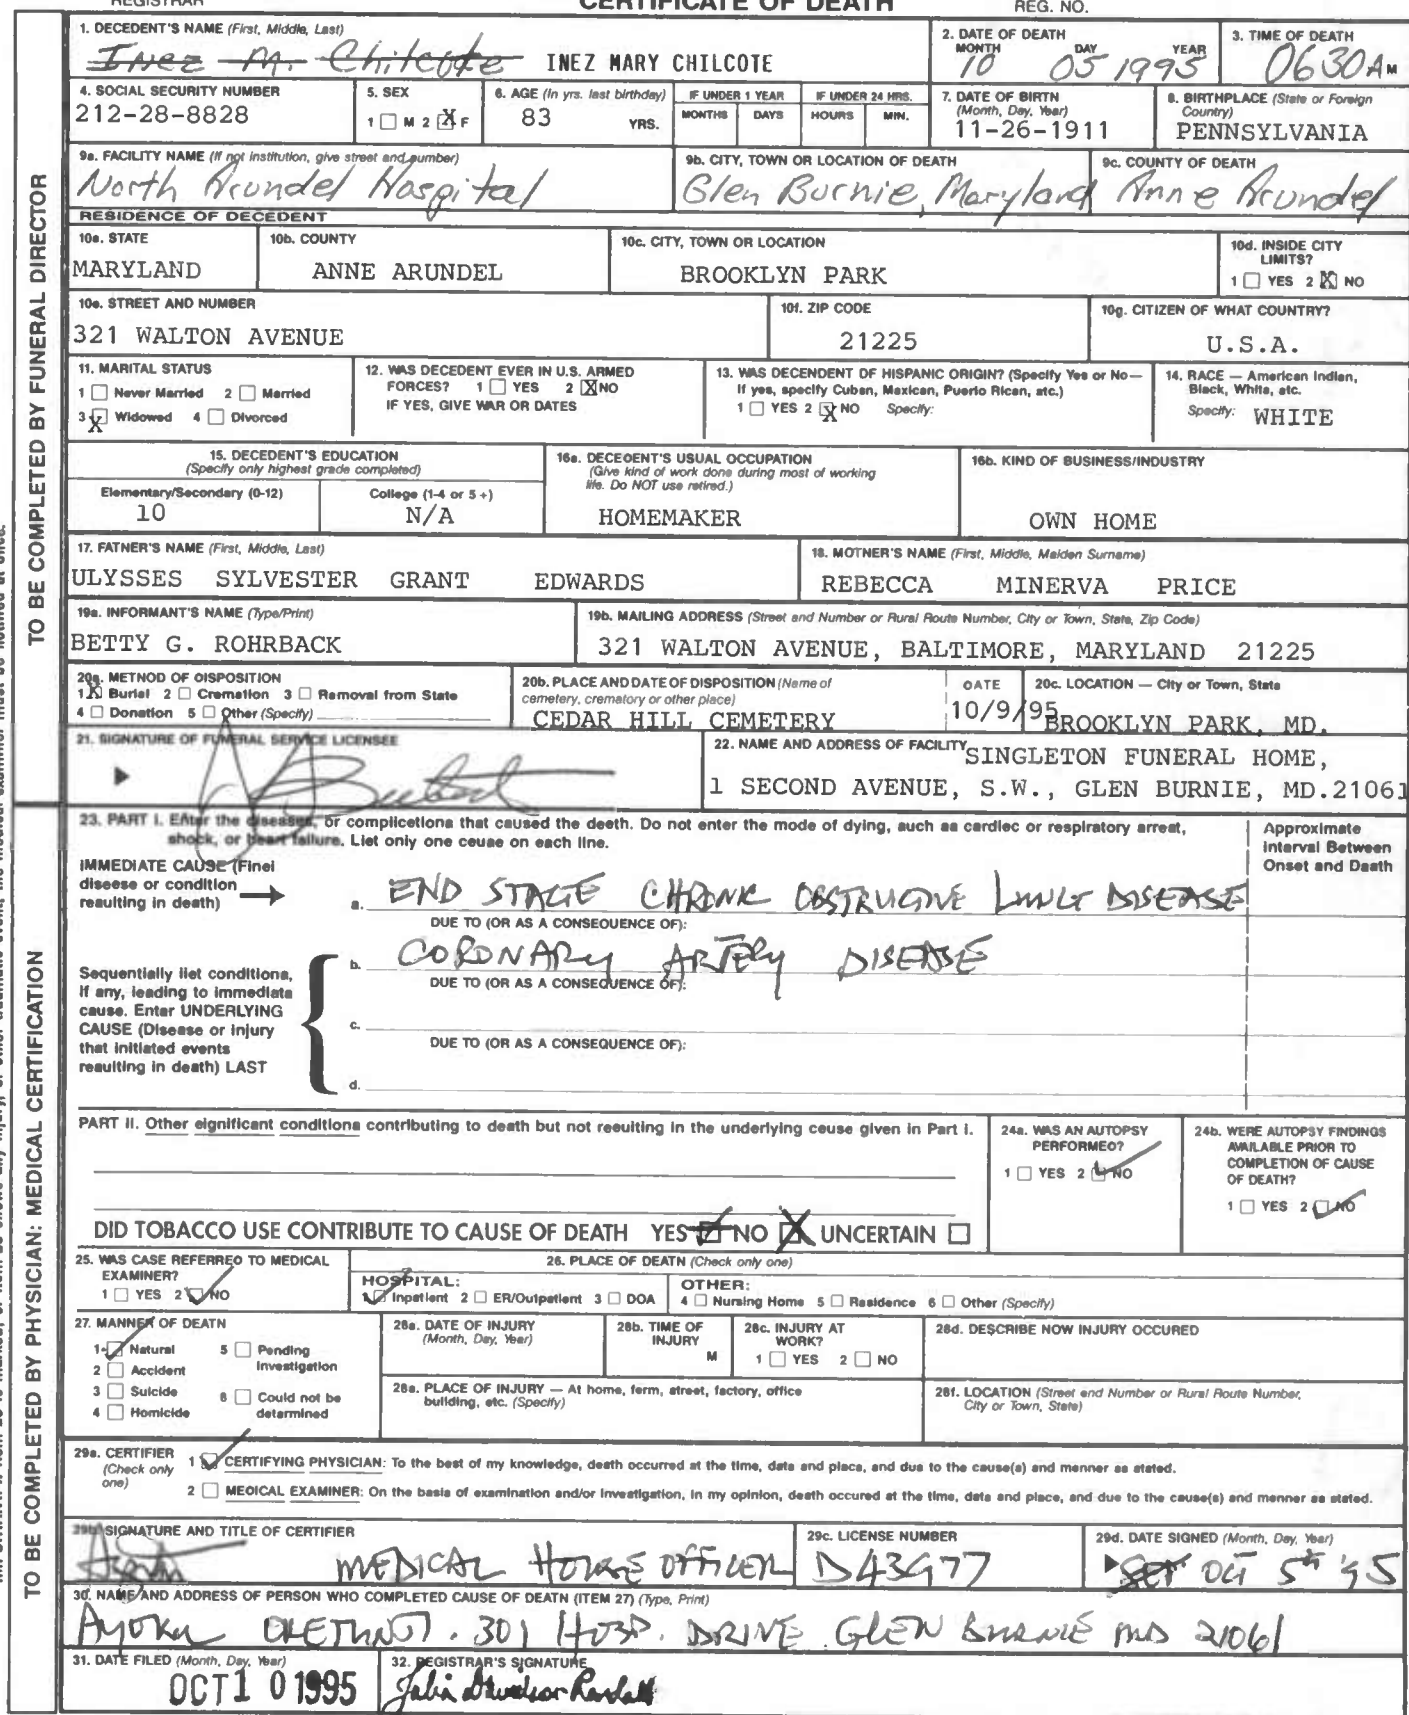 REGISTRAR CERTIFICATE OF DEATH REG. NO.
1. DECEDENT'S NAME (First, Middle, Last)
Inez M. Chilcote INEZ MARY CHILCOTE
2. DATE OF DEATH
MONTH DAY YEAR
10 05 1995
3. TIME OF DEATH
0630 AM
4. SOCIAL SECURITY NUMBER
212-28-8828
5. SEX
1 M 2 X F
6. AGE (In yrs. last birthday)
83 YRS.
IF UNDER 1 YEAR
MONTHS DAYS
IF UNDER 24 HRS.
HOURS MIN.
7. DATE OF BIRTH
(Month, Day, Year)
11-26-1911
8. BIRTHPLACE (State or Foreign
Country)
PENNSYLVANIA
9a. FACILITY NAME (If not institution, give street and number)
North Arundel Hospital
9b. CITY, TOWN OR LOCATION OF DEATH
Glen Burnie, Maryland
9c. COUNTY OF DEATH
Anne Arundel
RESIDENCE OF DECEDENT
10a. STATE
MARYLAND
10b. COUNTY
ANNE ARUNDEL
10c. CITY, TOWN OR LOCATION
BROOKLYN PARK
10d. INSIDE CITY
LIMITS?
1 YES 2 X NO
10e. STREET AND NUMBER
321 WALTON AVENUE
10f. ZIP CODE
21225
10g. CITIZEN OF WHAT COUNTRY?
U.S.A.
11. MARITAL STATUS
1 Never Married 2 Married
3 X Widowed 4 Divorced
12. WAS DECEDENT EVER IN U.S. ARMED
FORCES? 1 YES 2 X NO
IF YES, GIVE WAR OR DATES
13. WAS DECENDENT OF HISPANIC ORIGIN? (Specify Yes or No—
If yes, specify Cuban, Mexican, Puerto Rican, etc.)
1 YES 2 X NO Specify:
14. RACE — American Indian,
Black, White, etc.
Specify: WHITE
15. DECEDENT'S EDUCATION
(Specify only highest grade completed)
Elementary/Secondary (0-12) College (1-4 or 5 +)
10 N/A
16a. DECEDENT'S USUAL OCCUPATION
(Give kind of work done during most of working
life. Do NOT use retired.)
HOMEMAKER
16b. KIND OF BUSINESS/INDUSTRY
OWN HOME
17. FATHER'S NAME (First, Middle, Last)
ULYSSES SYLVESTER GRANT EDWARDS
18. MOTHER'S NAME (First, Middle, Maiden Surname)
REBECCA MINERVA PRICE
19a. INFORMANT'S NAME (Type/Print)
BETTY G. ROHRBACK
19b. MAILING ADDRESS (Street and Number or Rural Route Number, City or Town, State, Zip Code)
321 WALTON AVENUE, BALTIMORE, MARYLAND 21225
20a. METHOD OF DISPOSITION
1 X Burial 2 Cremation 3 Removal from State
4 Donation 5 Other (Specify)
20b. PLACE AND DATE OF DISPOSITION (Name of
cemetery, crematory or other place)
CEDAR HILL CEMETERY
DATE
10/9/95
20c. LOCATION — City or Town, State
BROOKLYN PARK, MD.
21. SIGNATURE OF FUNERAL SERVICE LICENSEE
22. NAME AND ADDRESS OF FACILITY
SINGLETON FUNERAL HOME,
1 SECOND AVENUE, S.W., GLEN BURNIE, MD.21061
TO BE COMPLETED BY FUNERAL DIRECTOR
23. PART I. Enter the diseases, or complications that caused the death. Do not enter the mode of dying, such as cardiac or respiratory arrest,
shock, or heart failure. List only one cause on each line.
Approximate
Interval Between
Onset and Death
IMMEDIATE CAUSE (Final
disease or condition
resulting in death)
a. END STAGE CHRONIC OBSTRUCTIVE LUNG DISEASE
DUE TO (OR AS A CONSEQUENCE OF):
b. CORONARY ARTERY DISEASE
DUE TO (OR AS A CONSEQUENCE OF):
c.
DUE TO (OR AS A CONSEQUENCE OF):
d.
Sequentially list conditions,
if any, leading to immediate
cause. Enter UNDERLYING
CAUSE (Disease or injury
that initiated events
resulting in death) LAST
PART II. Other significant conditions contributing to death but not resulting in the underlying cause given in Part I.
24a. WAS AN AUTOPSY
PERFORMED?
1 YES 2 NO
24b. WERE AUTOPSY FINDINGS
AVAILABLE PRIOR TO
COMPLETION OF CAUSE
OF DEATH?
1 YES 2 NO
DID TOBACCO USE CONTRIBUTE TO CAUSE OF DEATH YES NO X UNCERTAIN
25. WAS CASE REFERRED TO MEDICAL
EXAMINER?
1 YES 2 NO
26. PLACE OF DEATH (Check only one)
HOSPITAL:
1 Inpatient 2 ER/Outpatient 3 DOA
OTHER:
4 Nursing Home 5 Residence 6 Other (Specify)
27. MANNER OF DEATH
1 Natural 5 Pending
2 Accident Investigation
3 Suicide 6 Could not be
4 Homicide determined
28a. DATE OF INJURY
(Month, Day, Year)
28b. TIME OF
INJURY
M
28c. INJURY AT
WORK?
1 YES 2 NO
28d. DESCRIBE HOW INJURY OCCURED
28e. PLACE OF INJURY — At home, farm, street, factory, office
building, etc. (Specify)
28f. LOCATION (Street and Number or Rural Route Number,
City or Town, State)
29a. CERTIFIER
(Check only
one)
1 CERTIFYING PHYSICIAN: To the best of my knowledge, death occurred at the time, date and place, and due to the cause(s) and manner as stated.
2 MEDICAL EXAMINER: On the basis of examination and/or investigation, in my opinion, death occured at the time, date and place, and due to the cause(s) and manner as stated.
29b. SIGNATURE AND TITLE OF CERTIFIER
MEDICAL HOUSE OFFICER
29c. LICENSE NUMBER
D43977
29d. DATE SIGNED (Month, Day, Year)
OCT 5th 95
30. NAME AND ADDRESS OF PERSON WHO COMPLETED CAUSE OF DEATH (ITEM 27) (Type, Print)
301 HOSP. DRIVE GLEN BURNIE MD 21061
31. DATE FILED (Month, Day, Year)
OCT 10 1995
32. REGISTRAR'S SIGNATURE
TO BE COMPLETED BY PHYSICIAN: MEDICAL CERTIFICATION